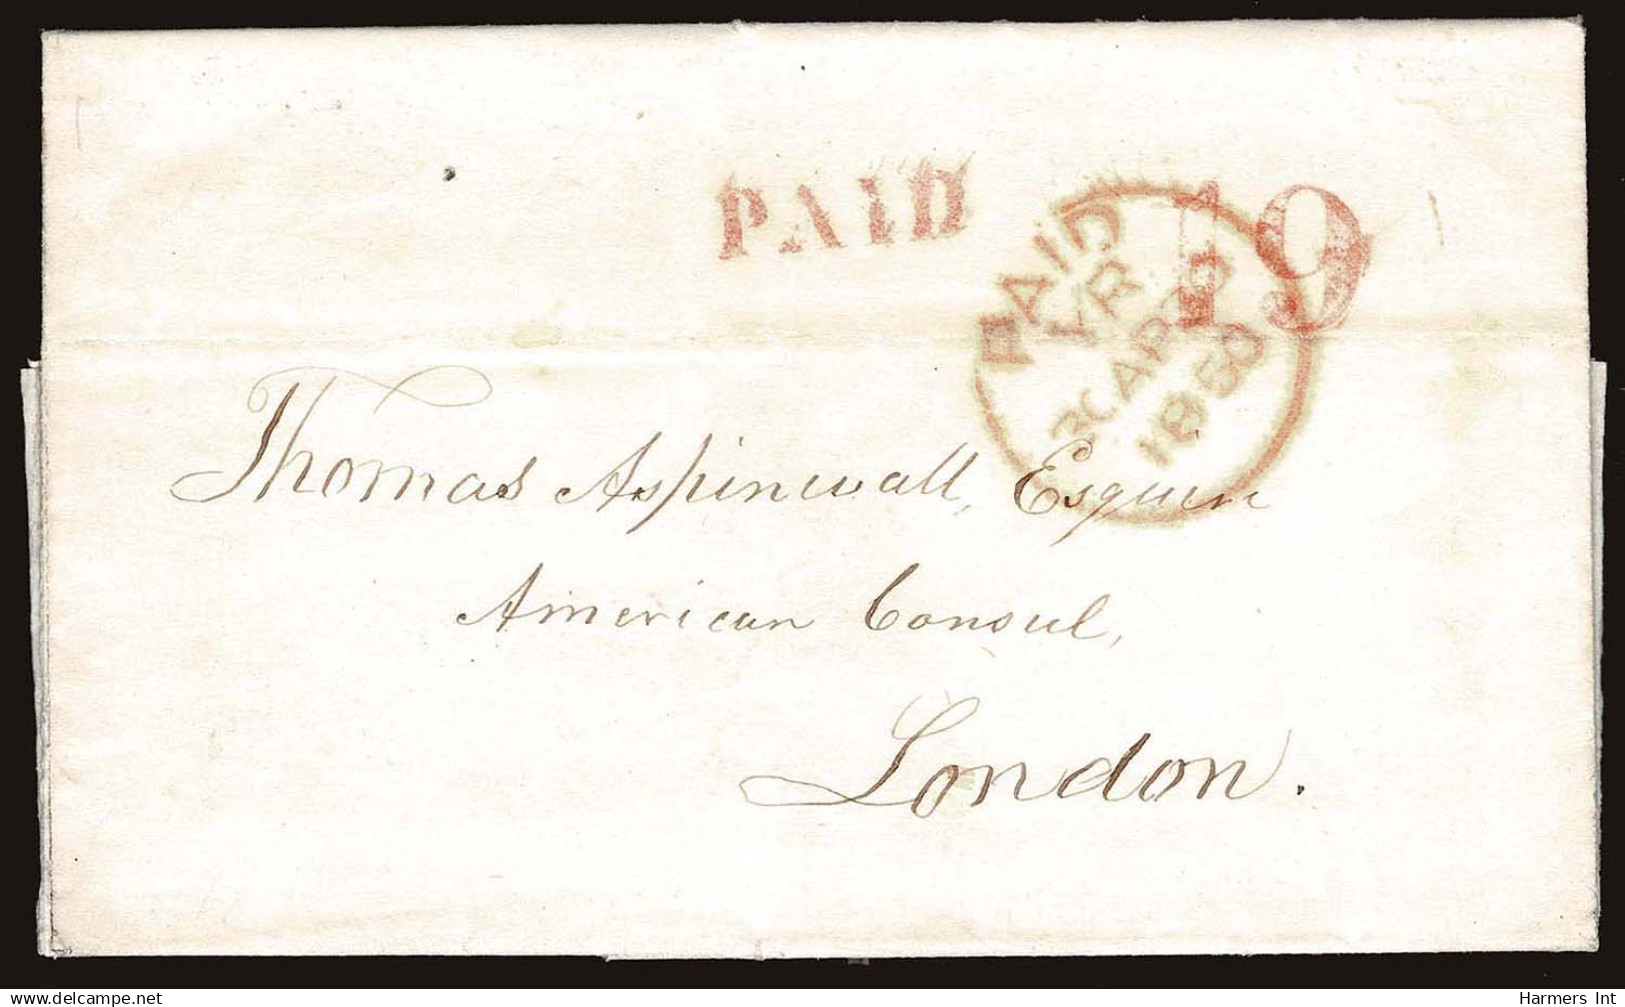 PAID
19
PAID
YR
3CAP30
1850
Thomas Aspinwall, Esquire
American Consul,
London.
delcampe.net
Harmers Int